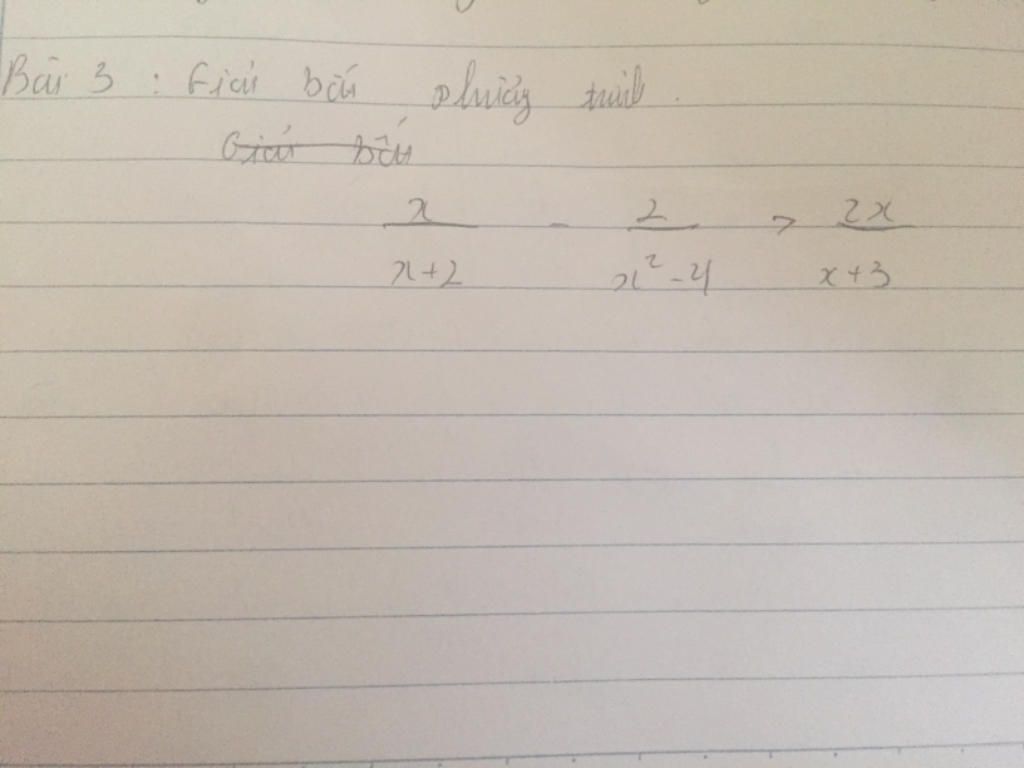 Bài 3 : Giải bất phương trình.
Giải bất
x/(x+2) - 2/(x²-4) > 2x/(x+3)